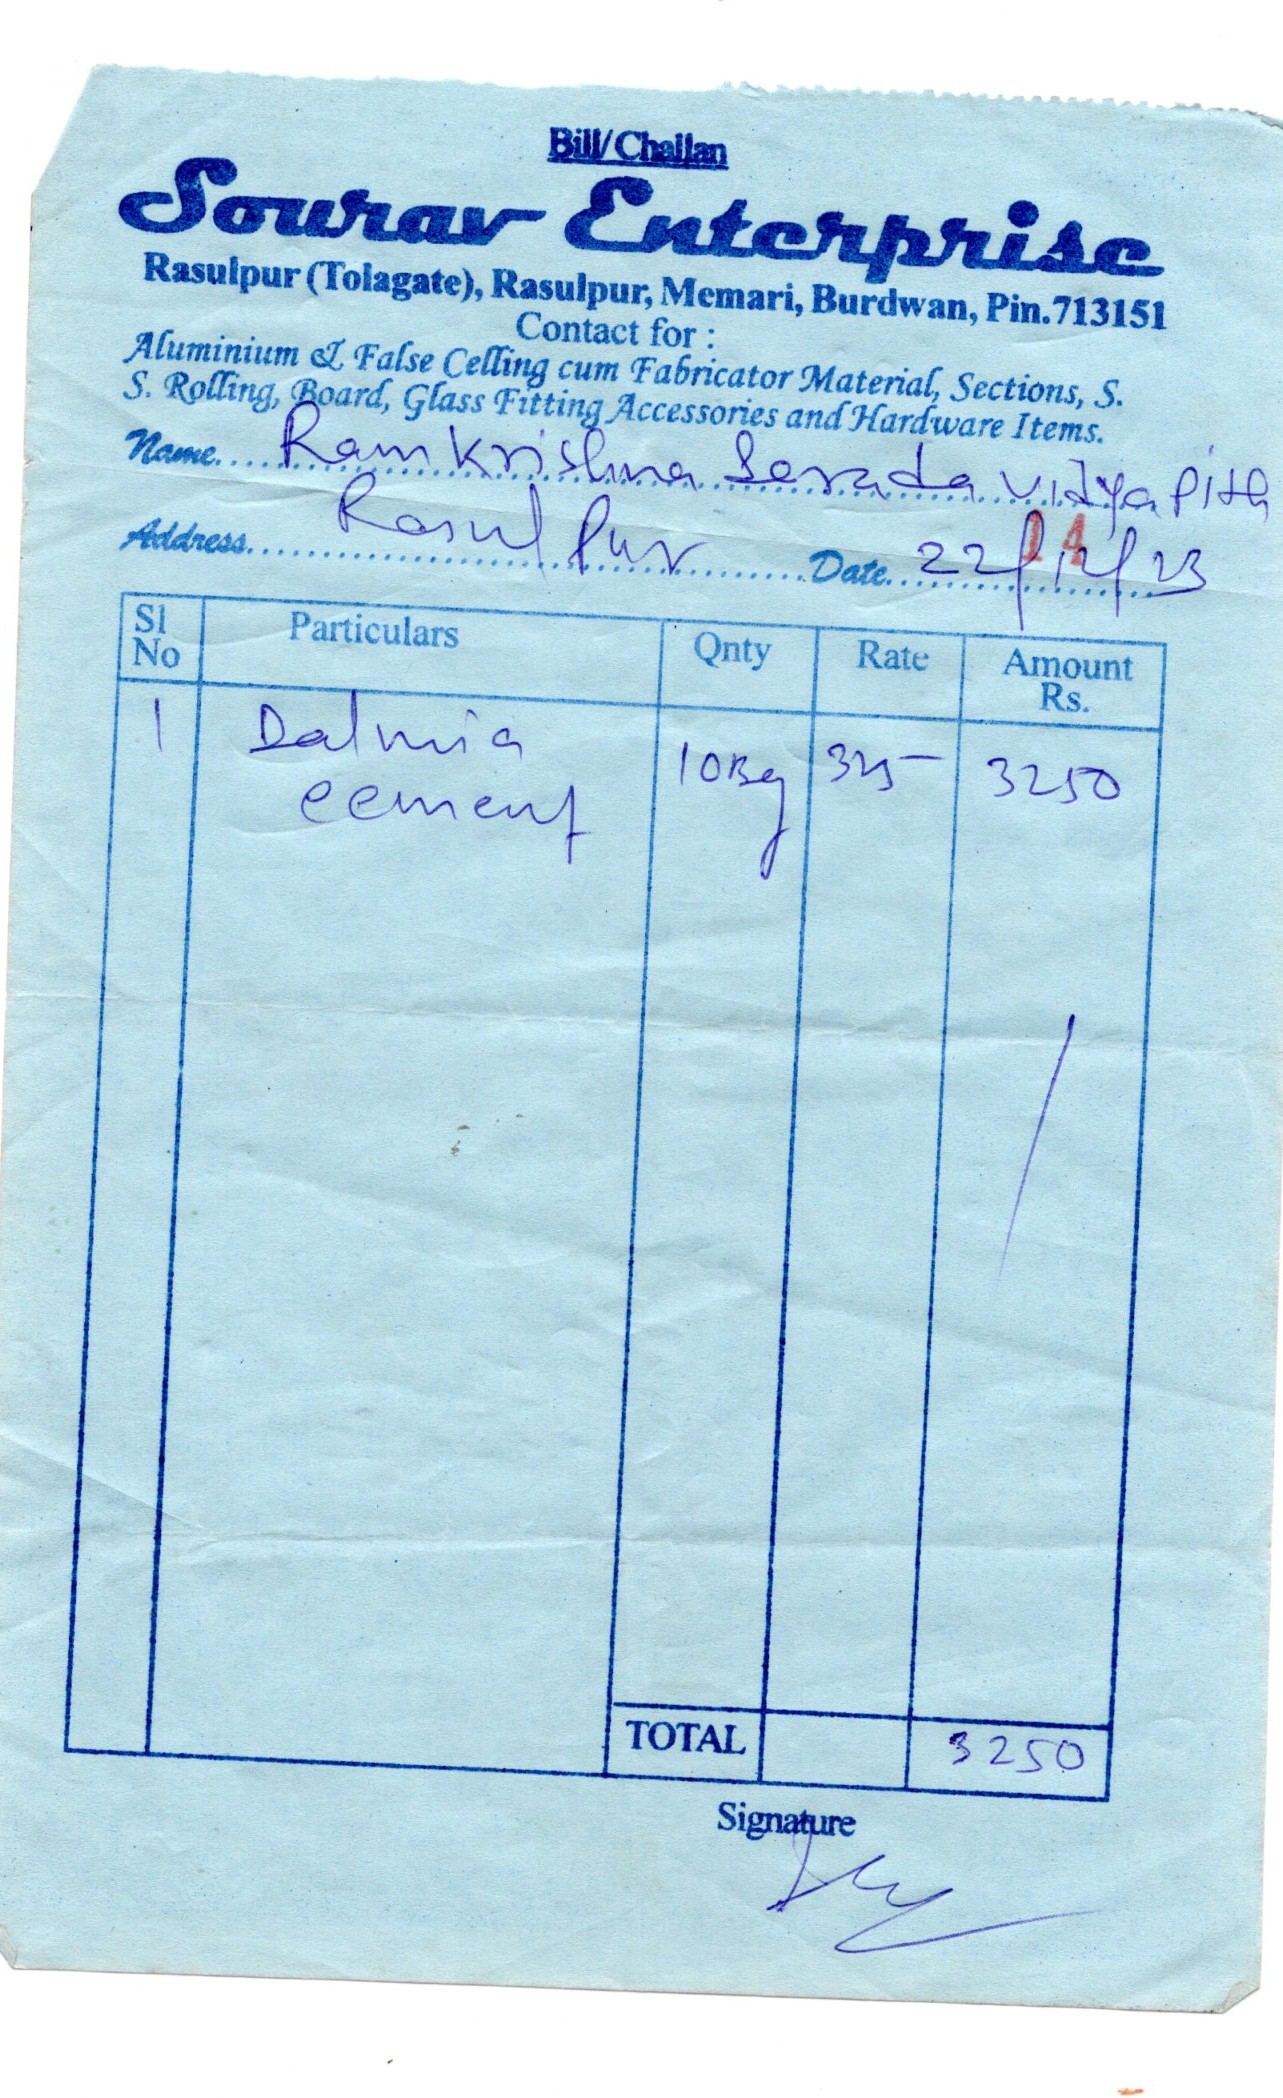 Bill/Challan
Sourav Enterprise
Rasulpur (Tolagate), Rasulpur, Memari, Burdwan, Pin.713151
Contact for :
Aluminium & False Celling cum Fabricator Material, Sections, S.
S. Rolling, Board, Glass Fitting Accessories and Hardware Items.
Name. Ramkrishna Sarada vidya Pith
14
Address. Rasulpur Date. 22/12/23
Sl No Particulars Qnty Rate Amount Rs.
1 Dalmia 10Bg 325- 3250
cement
TOTAL 3250
Signature